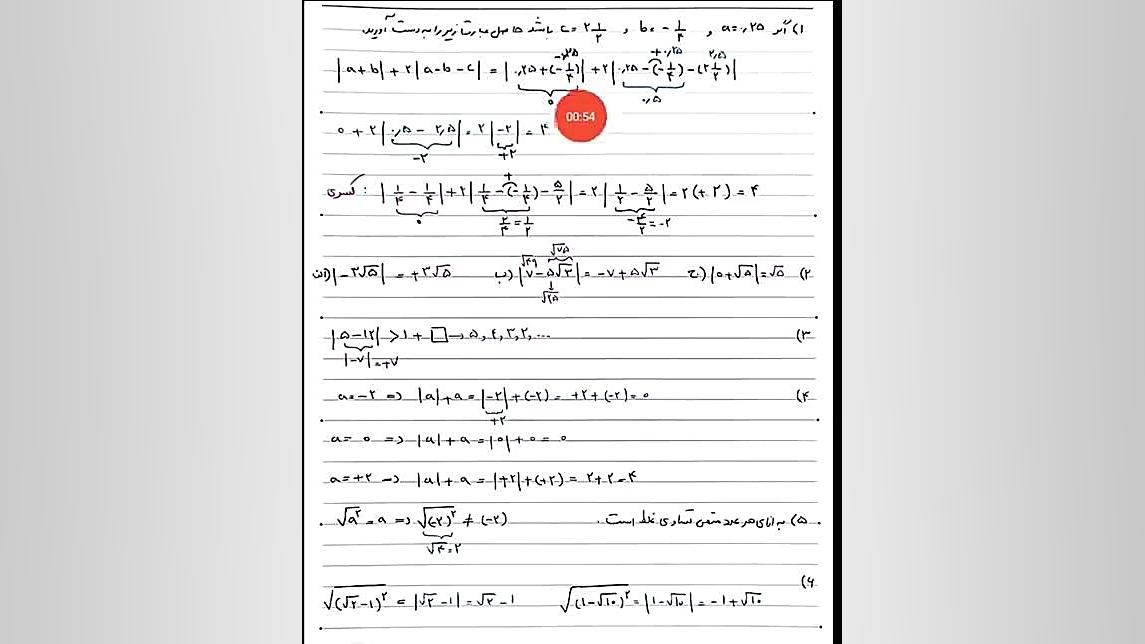 ۱) اگر a=۰٫۲۵ و b=-۱/۴ و c=۲ ۱/۲ باشد حاصل عبارت زیر را به دست آورید.
|a+b|+۲|a-b-c|=|۰٫۲۵+(-۱/۴)|+۲|۰٫۲۵-(-۱/۴)-(۲ ۱/۲)|
-۰٫۲۵ +۰٫۲۵ ۲٫۵
۰ ۰٫۵
00:54
۰+۲|۰٫۵-۲٫۵|=۲|-۲|=۴
-۲ +۲
کسری: |۱/۴-۱/۴|+۲|۱/۴-(-۱/۴)-۵/۲|=۲|۱/۲-۵/۲|=۲(+۲)=۴
+
۰ ۲/۴=۱/۲ -۴/۲=-۲
۲) الف) |-۳√۵|=+۳√۵ ب) |۷-۵√۳|=-۷+۵√۳ ج) |۰+√۵|=√۵
√۴۹ √۷۵
√۲۵
۳) |۵-۱۲|>۱+□→۵,۴,۳,۲,...
|-۷|=+۷
۴) a=-۲ ⇒ |a|+a=|-۲|+(-۲)=+۲+(-۲)=۰
+۲
a=۰ ⇒ |a|+a=|۰|+۰=۰
a=+۲ ⇒ |a|+a=|+۲|+(+۲)=۲+۲=۴
۵) به ازای هر عدد منفی تساوی غلط است. √a²=a ⇒ √(-۲)² ≠ (-۲)
√۴=۲
۶)
√(√۲-۱)²=|√۲-۱|=√۲-۱ √(۱-√۱۰)²=|۱-√۱۰|=-۱+√۱۰